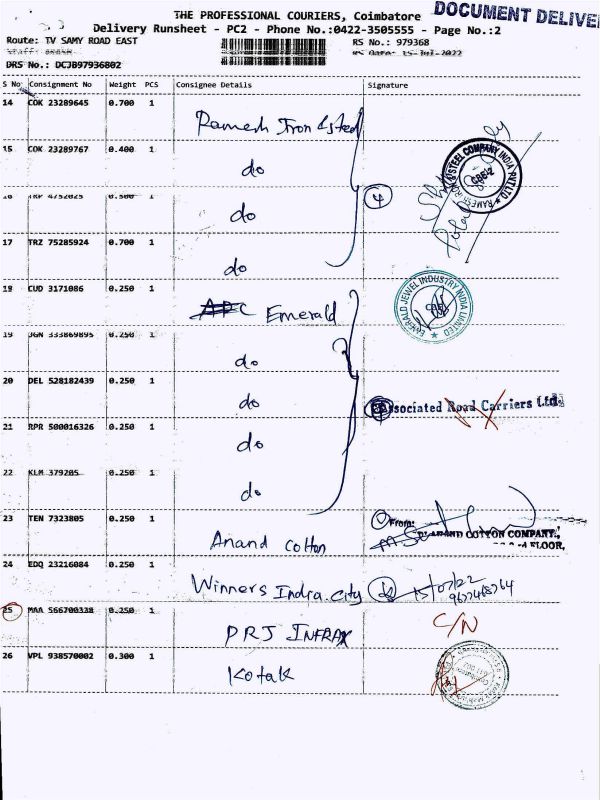 THE PROFESSIONAL COURIERS, Coimbatore
DOCUMENT DELIVE
Delivery Runsheet - PC2 - Phone No.:0422-3505555 - Page No.:2
Route: TV SAMY ROAD EAST
RS No.: 979368
RS Date: 15-Jul-2022
DRS No.: DCJB97936802
S No Consignment No Weight PCS Consignee Details Signature
14 COK 23289645 0.700 1
Ramesh Iron & steel
15 COK 23289767 0.400 1
do
16 TRP 4752025 0.500 1
do
4
17 TRZ 75285924 0.700 1
do
RAMESH IRON & STEEL COMPANY INDIA PVT.LTD.
CBE-2
18 CUD 3171086 0.250 1
Emerald
EMERALD JEWEL INDUSTRY INDIA LIMITED
CBE
19 JGN 333869895 0.250 1
do
20 DEL 528182439 0.250 1
do
Associated Road Carriers Ltd.
21 RPR 500016326 0.250 1
do
22 KLM 379205 0.250 1
do
23 TEN 7323805 0.250 1
Anand Cotton
From:
COTTON COMPANY,
FLOOR,
24 EDQ 23216084 0.250 1
Winners Indra.city
15/07/22
25 MAA 566700328 0.250 1
PRJ INFRA
C/N
26 VPL 938570002 0.300 1
Kotak